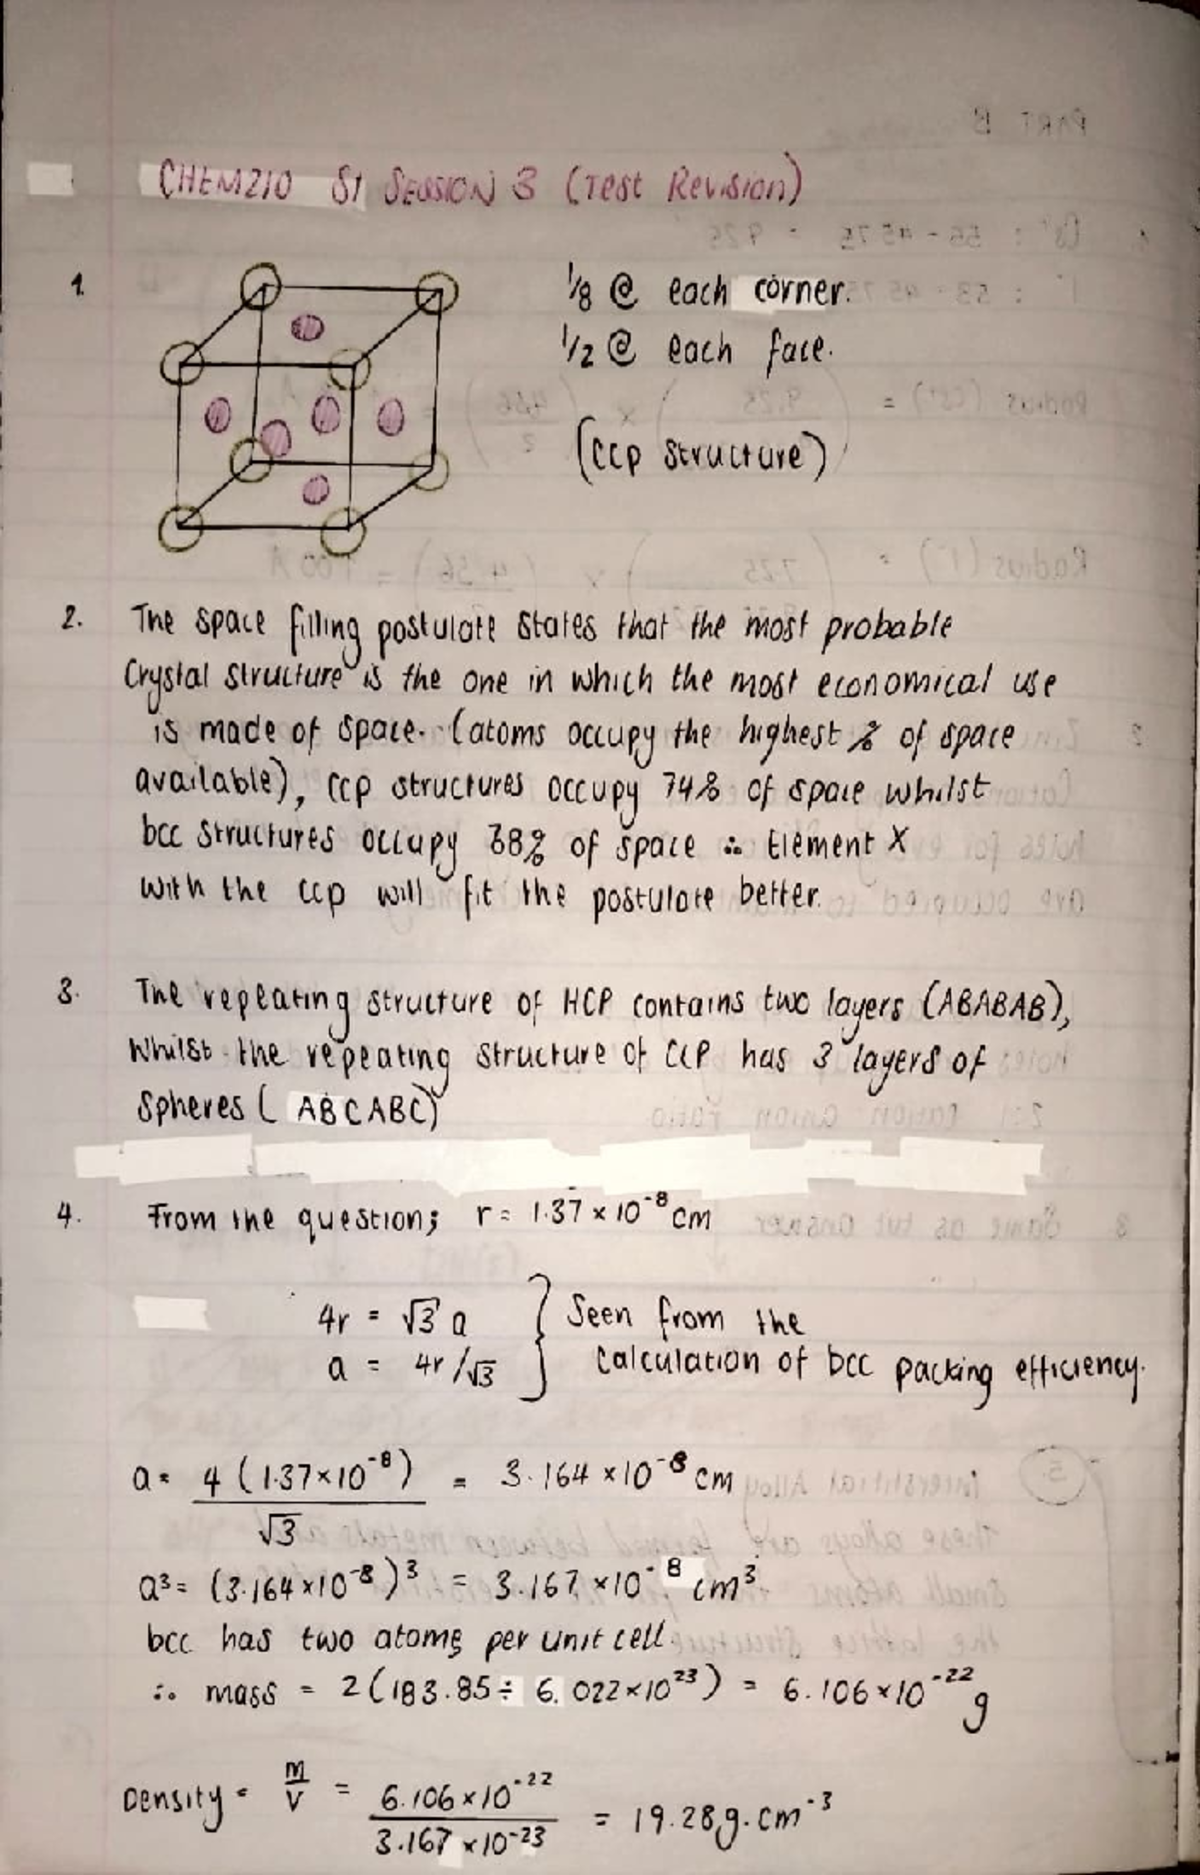 CHEM210 SI SESSION 3 (Test Revision)
1.
1/8 @ each corner.
1/2 @ each face.
(ccp structure)
2. The space filling postulate states that the most probable
crystal structure is the one in which the most economical use
is made of space. (atoms occupy the highest % of space
available), ccp structures occupy 74% of space whilst
bcc structures occupy 68% of space ∴ Element X
with the ccp will fit the postulate better.
3. The repeating structure of HCP contains two layers (ABABAB),
whilst the repeating structure of CCP has 3 layers of
spheres ( ABCABC)
4. From the question; r = 1.37 × 10⁻⁸ cm
4r = √3 a } Seen from the
a = 4r/√3 calculation of bcc packing efficiency.
a = 4 (1.37×10⁻⁸) / √3 = 3.164 ×10⁻⁸ cm
a³ = (3.164×10⁻⁸)³ = 3.167 ×10⁻⁸ cm³
bcc has two atoms per unit cell.
∴ mass = 2(183.85 ÷ 6.022×10²³) = 6.106×10⁻²² g
Density = m/v = 6.106×10⁻²² / 3.167 ×10⁻²³ = 19.28g.cm⁻³